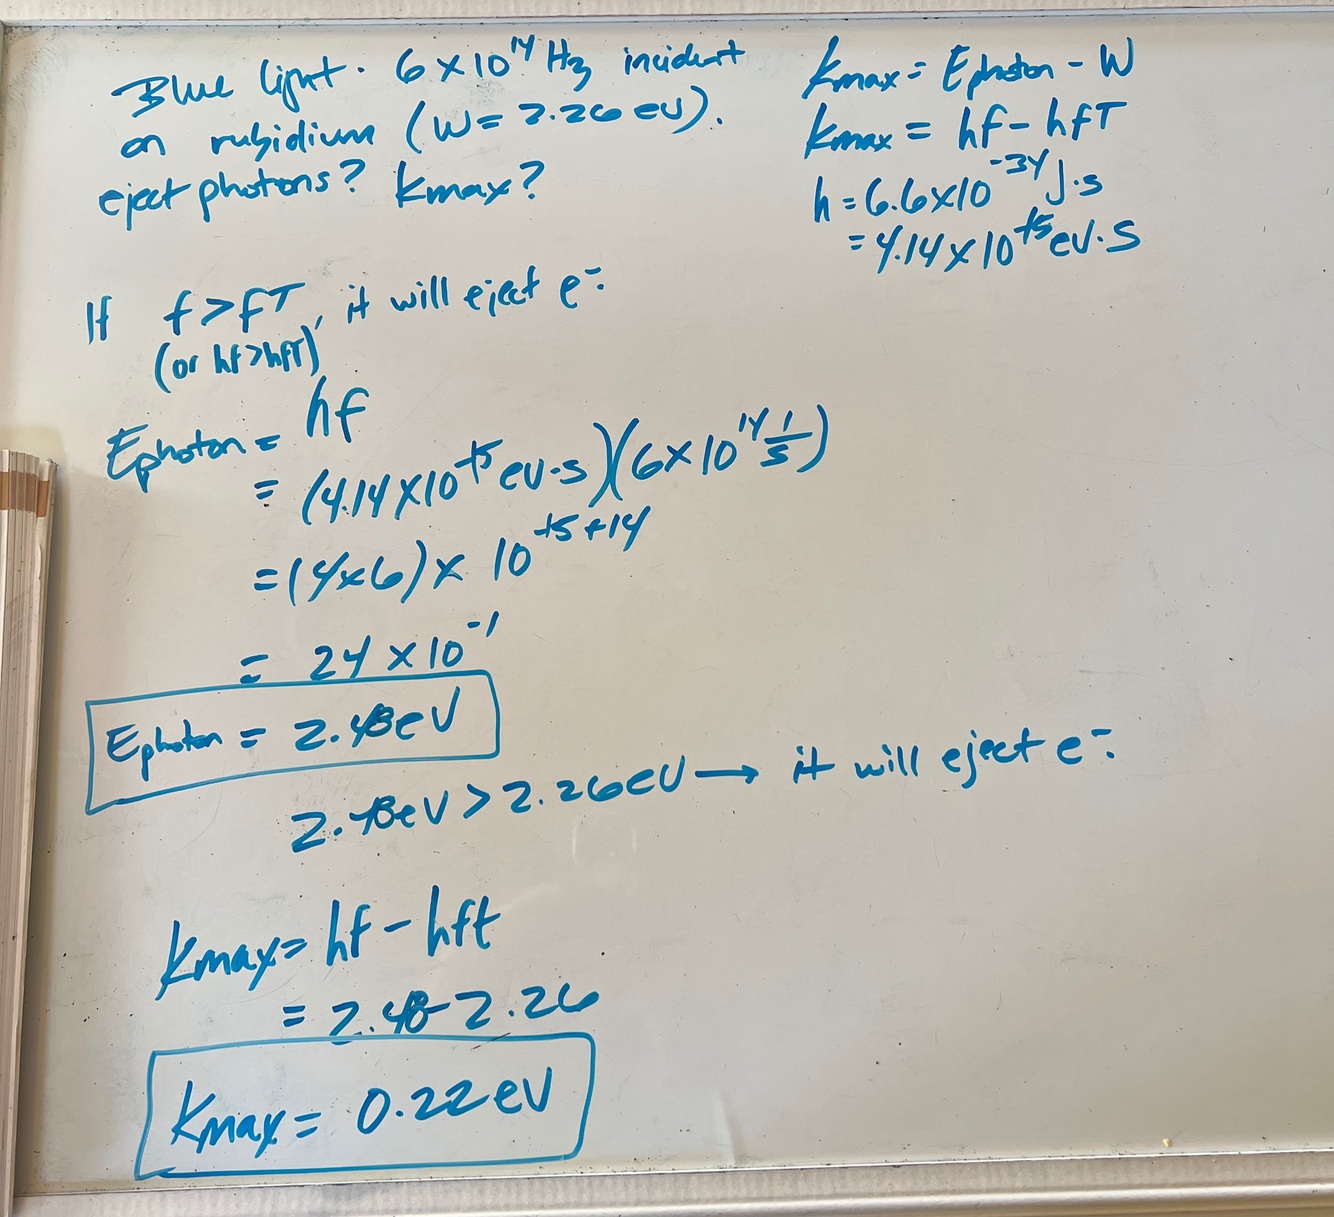 Blue light. 6 x 10^14 Hz incident
on rubidium (W = 2.26 eV).
eject photons? Kmax?
Kmax = Ephoton - W
Kmax = hf - hfT
h = 6.6 x 10^-34 J·s
= 4.14 x 10^-15 eV·s
If f > fT, it will eject e-.
(or hf > hfT)
Ephoton = hf
= (4.14 x 10^-15 eV·s)(6 x 10^14 1/s)
= (4 x 6) x 10^-15 + 14
= 24 x 10^-1
Ephoton = 2.48 eV
2.48 eV > 2.26 eV → it will eject e-.
Kmax = hf - hft
= 2.48 - 2.26
Kmax = 0.22 eV